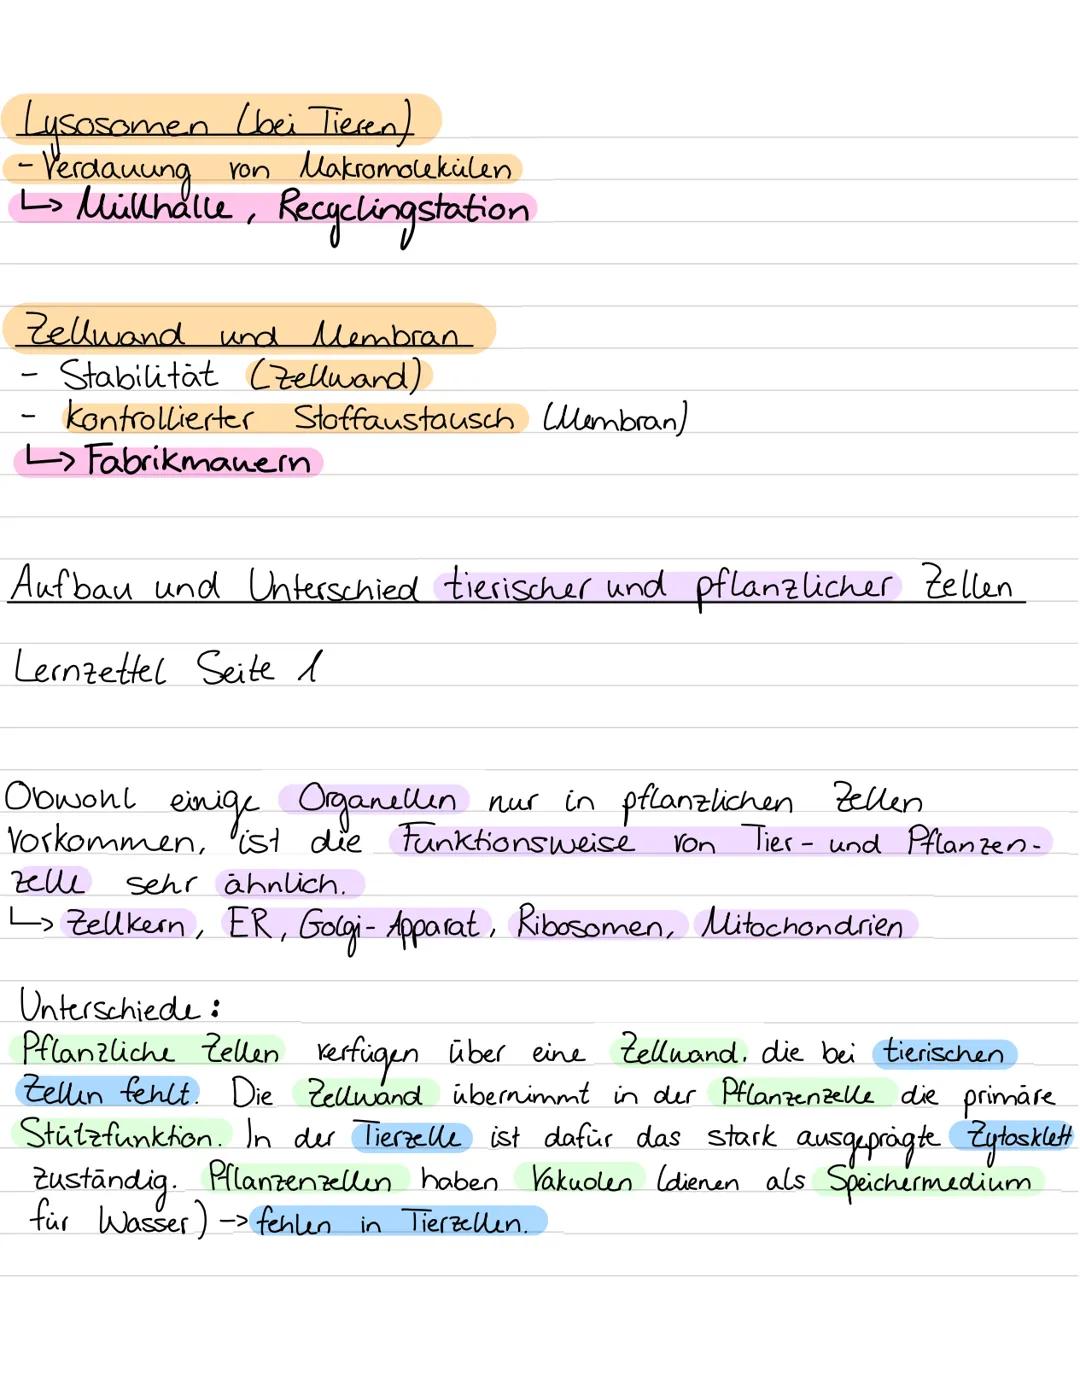 Lysosomen (bei Tieren)
- Verdauung von Makromolekülen
↳ Müllhalle, Recyclingstation
Zellwand und Membran
- Stabilität (Zellwand)
- kontrollierter Stoffaustausch (Membran)
↳ Fabrikmauern
Aufbau und Unterschied tierischer und pflanzlicher Zellen
Lernzettel Seite 1
Obwohl einige Organellen nur in pflanzlichen Zellen
vorkommen, ist die Funktionsweise von Tier- und Pflanzen-
zelle sehr ähnlich.
↳ Zellkern, ER, Golgi-Apparat, Ribosomen, Mitochondrien
Unterschiede:
Pflanzliche Zellen verfügen über eine Zellwand, die bei tierischen
Zellen fehlt. Die Zellwand übernimmt in der Pflanzenzelle die primäre
Stützfunktion. In der Tierzelle ist dafür das stark ausgeprägte Zytosklett
zuständig. Pflanzenzellen haben Vakuolen (dienen als Speichermedium
für Wasser) -> fehlen in Tierzellen.